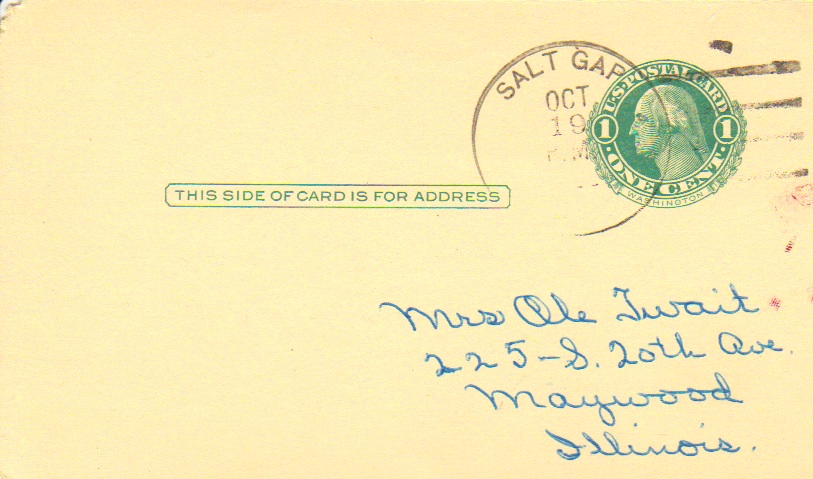 SALT GAP
OCT
19
M
U.S. POSTAL CARD
1 1
ONE CENT
WASHINGTON
THIS SIDE OF CARD IS FOR ADDRESS
Mrs Ole Twait
225-S. 20th Ave.
Maywood
Illinois.